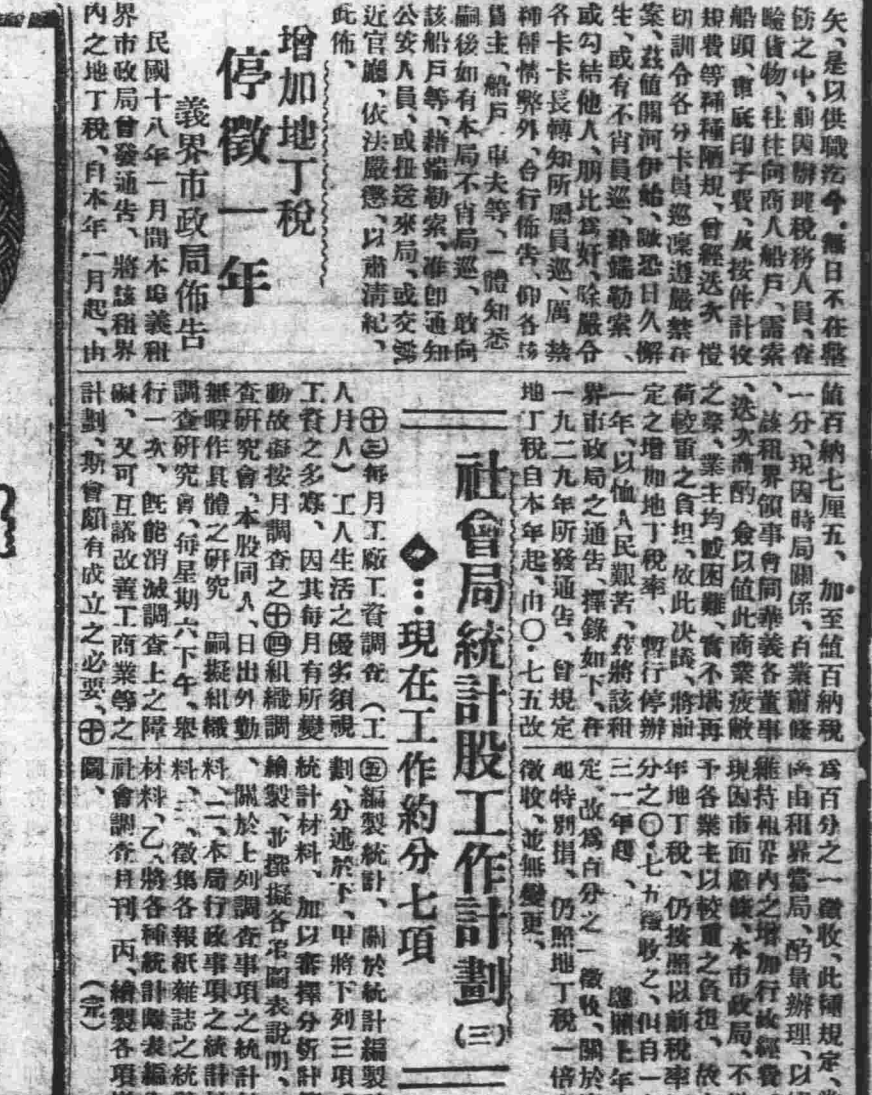 矢、是以供職迄今、無日不在整
飭之中、前因辦理稅務人員、在
驗貨物、往往向商人船戶、需索
船頭、車底印子費、及按件計收
規費等種種陋規、曾經迭次慣
切訓令各分卡員巡凜遵嚴禁在
案、茲値關河伊始、誠恐日久懈
生、或有不肖員巡、藉端勒索、
或勾結他人、朋比爲奸、除嚴令
各卡卡長轉知所屬員巡、厲禁
種種情弊外、合行佈吿、仰各該
貨主、船戶、車夫等、一體知悉
嗣後如有本局不肖局巡、敢向
該船戶等、藉端勒索、准卽通知
公安人員、或扭送來局、或交
近官廳、依法嚴懲、以肅淸紀、
此佈、
增加地丁稅
停徵一年
義界市政局佈吿
民國十八年一月間本埠義租
界市政局曾發通吿、將該租界
內之地丁稅、自本年一月起、由
値百納七厘五、加至値百納稅
一分、現因時局關係、百業蕭條
、該租界領事會同華義各董事
、迭次商酌、僉以値此商業疲敝
之際、業主均感困難、實不堪再
荷較重之負担、故此决議、將前
定之增加地丁稅率、暫行停辦
一年、以恤人民艱苦、茲將該租
界市政局之通吿、擇錄如下、在
一九二九年所發通吿、曾規定
地丁稅自本年起、由〇・七五改
爲百分之一徵收、此種規定、
由租界當局、酌量辦理、以
維持租界內之增加行政經費
現因市面蕭條、本市政局、不
予各業主以較重之負担、故
年地丁稅、仍按照以前稅率
分之〇・七五徵收之、但自一
三一年起、應照上年
定、改爲百分之一徵收、關於
地特別捐、仍照地丁稅一倍
徵收、並無變更、
社會局統計股工作計劃(三)
◆…現在工作約分七項
(十三)每月工廠工資調查(工
人月人)工人生活之優劣須視
工資之多寡、因其每月有所變
動故擬按月調查之(十四)組織調
查研究會、本股同人、日出外勤
無暇作具體之研究 嗣擬組織
調查研究會、每星期六下午、舉
行一次、旣能消滅調查上之障
礙、又可互議改善工商業等之
計劃、斯會頗有成立之必要、(十
五)編製統計、關於統計編製
劃、分述於下、甲將下列三項
統計材料、加以審擇分析計
繪製、並撰擬各項圖表說明、
、關於上列調查事項之統計
料、二、本局行政事項之統計
料、三、徵集各報紙雜誌之統
材料、乙、將各種統計圖表編
社會調查月刊 丙、繪製各項
圖、(完)